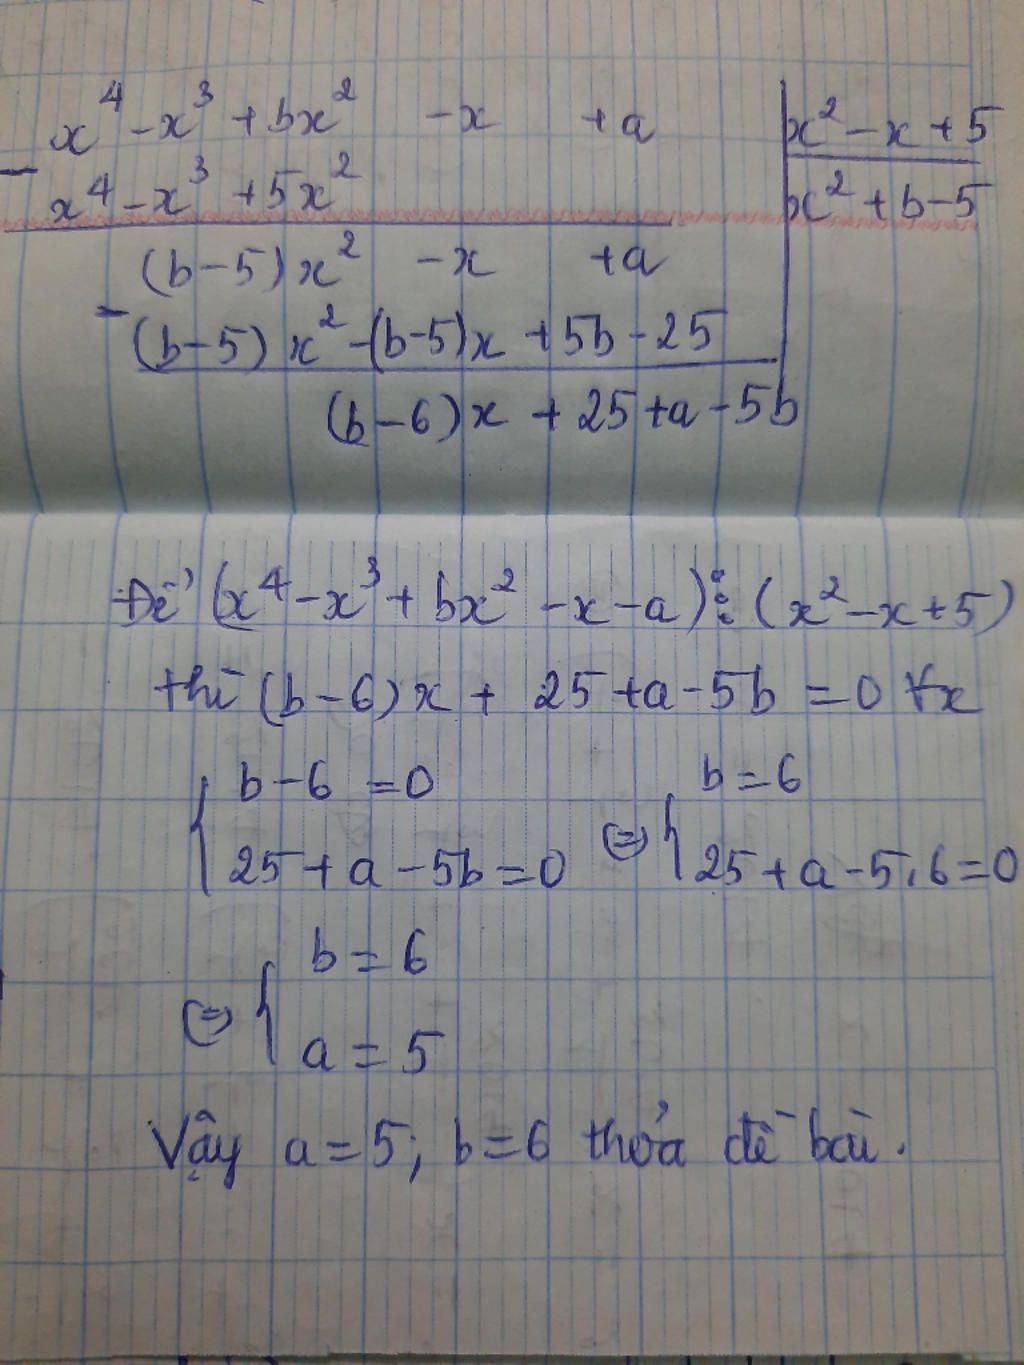 x⁴ - x³ + bx² - x + a | x² - x + 5
- x⁴ - x³ + 5x² | x² + b - 5
(b-5)x² - x + a
- (b-5)x² - (b-5)x + 5b - 25
(b-6)x + 25 + a - 5b
Để (x⁴ - x³ + bx² - x - a) ⋮ (x² - x + 5)
thì (b-6)x + 25 + a - 5b = 0 ∀x
{ b - 6 = 0 ⇔ { b = 6
25 + a - 5b = 0 25 + a - 5.6 = 0
⇔ { b = 6
a = 5
Vậy a = 5; b = 6 thỏa đề bài.